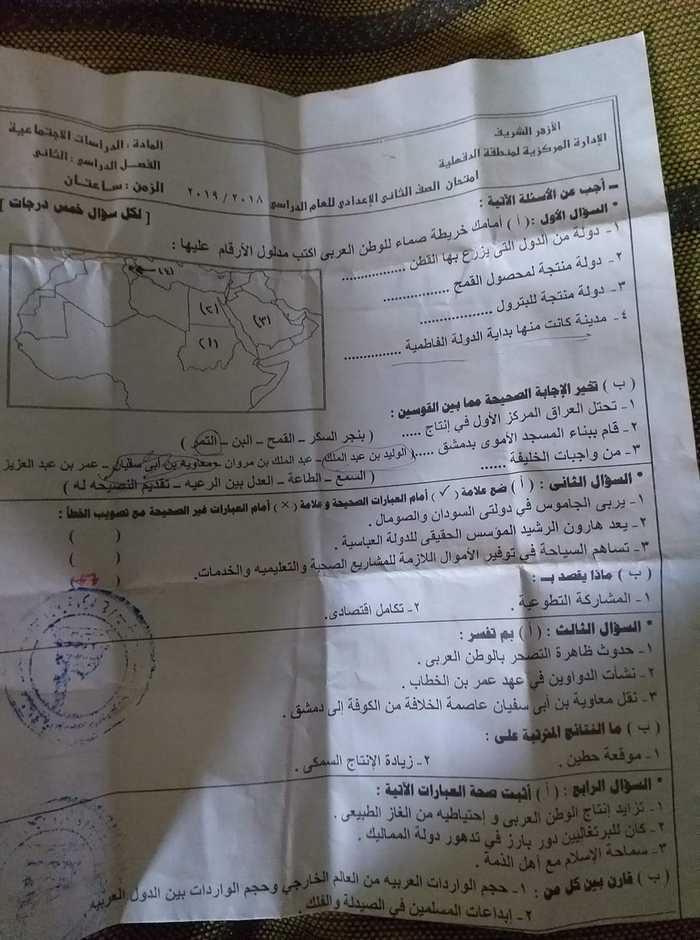 الأزهر الشريف
الإدارة المركزية لمنطقة الدقهلية
امتحان الصف الثانى الإعدادى للعام الدراسى ٢٠١٨ / ٢٠١٩
المادة : الدراسات الاجتماعية
الفصل الدراسى : الثانى
الزمن : ساعتان
ــ أجب عن الأسئلة الآتية :
[ لكل سوال خمس درجات ]
* السؤال الأول : ( أ ) أمامك خريطة صماء للوطن العربى اكتب مدلول الأرقام عليها :
١- دولة من الدول التى يزرع بها القطن ................
٢- دولة منتجة لمحصول القمح ................
٣- دولة منتجة للبترول ................
٤- مدينة كانت منها بداية الدولة الفاطمية ................
(٤)
(٢)
(٣)
(١)
( ب ) تخير الإجابة الصحيحة مما بين القوسين :
١- تحتل العراق المركز الأول في إنتاج ..... ( بنجر السكر – القمح – البن – التمر )
٢- قام ببناء المسجد الأموى بدمشق ..... ( الوليد بن عبد الملك – عبد الملك بن مروان – معاوية بن أبى سفيان – عمر بن عبد العزيز
٣- من واجبات الخليفة ...... ( السمع – الطاعة – العدل بين الرعيه – تقديم النصيحه له )
* السؤال الثانى : ( أ ) ضع علامة ( ✓ ) أمام العبارات الصحيحة و علامة ( × ) أمام العبارات غير الصحيحة مع تصويب الخطأ :
١- يربى الجاموس في دولتى السودان والصومال . ( )
٢- يعد هارون الرشيد المؤسس الحقيقى للدولة العباسية . ( )
٣- تساهم السياحة في توفير الأموال اللازمة للمشاريع الصحبة والتعليميه والخدمات. ( )
( ب ) ماذا يقصد بـ :
١- المشاركة التطوعية . ٢- تكامل اقتصادى.
* السؤال الثالث : ( أ ) بم تفسر :
١- حدوث ظاهرة التصحر بالوطن العربى .
٢- نشأت الدواوين في عهد عمر بن الخطاب .
٣- نقل معاوية بن أبى سفيان عاصمة الخلافة من الكوفة إلى دمشق .
( ب ) ما النتائج المترتبة على :
١- موقعة حطين . ٢- زيادة الإنتاج السمكى .
* السؤال الرابع : ( أ ) أثبت صحة العبارات الآتية :
١- تزايد إنتاج الوطن العربى و إحتياطيه من الغاز الطبيعى .
٢- كان للبرتغاليين دور بارز في تدهور دولة المماليك .
٣- سماحة الإسلام مع أهل الذمة .
( ب ) قارن بين كل من : ١- حجم الواردات العربيه من العالم الخارجي وحجم الواردات بين الدول العربيه .
٢- إبداعات المسلمين في الصيدلة والفلك .